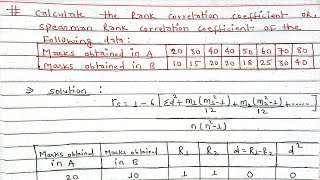 # Calculate the Rank correlation coefficient or
Spearman Rank correlation coefficient of the
Following data:
Marks obtained in A 20 30 40 40 50 60 70 80
Marks obtained in B 10 15 20 20 18 25 30 40
⇒ solution :
r = 1 - 6 [Σd² + m₁(m₁²-1)/12 + m₂(m₂²-1)/12 + .....]
n(n²-1)
Marks obtained in A Marks obtained in B R₁ R₂ d=R₁-R₂ d²
20 10 1 1 0 0